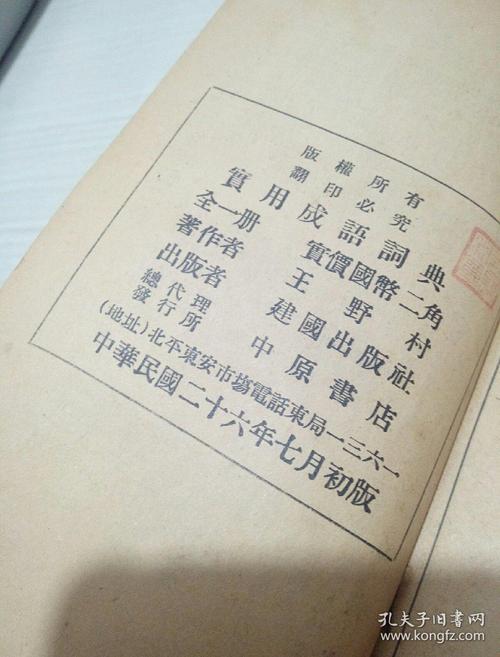 版權所有
翻印必究
實用成語詞典
全一册 實價國幣二角
著作者 王野村
出版者 建國出版社
總代理
發行所 中原書店
(地址)北平東安市場電話東局一三六一
中華民國二十六年七月初版
孔夫子旧书网
www.kongfz.com